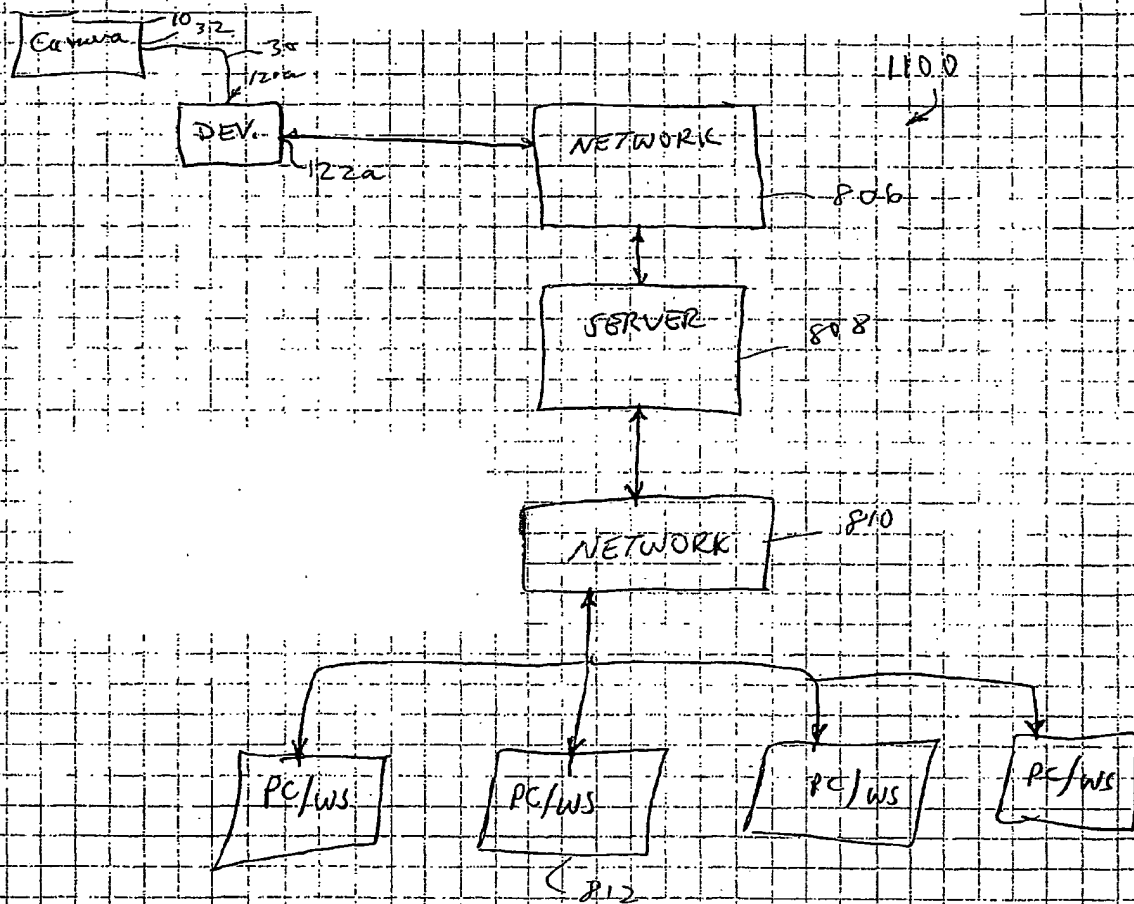 Camera
10
32
30
120a
1100
DEV.
122a
NETWORK
806
SERVER
808
NETWORK
810
PC/WS
PC/WS
PC/WS
PC/WS
812